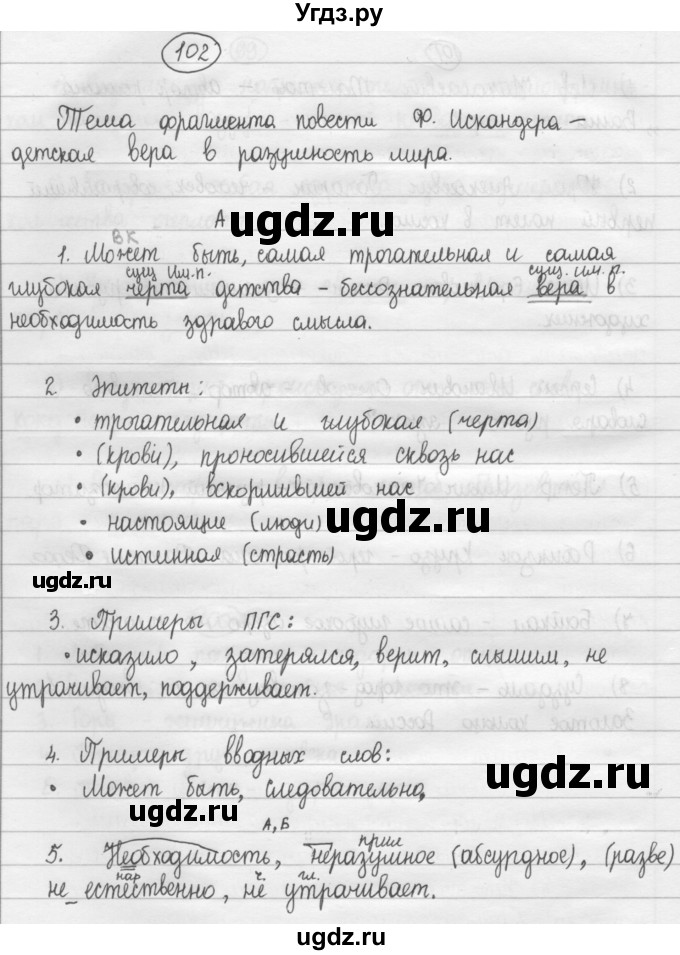 Угдз.ру
102
Тема фрагмента повести Ф. Искандера –
детская вера в разумность мира.
А
ugdz.ru
ВК
1. Может быть, самая трогательная и самая
сущ. Им.п. сущ. им. п.
глубокая черта детства – бессознательная вера в
необходимость здравого смысла.
2. Эпитеты:
• трогательная и глубокая (черта)
• (крови), проносившейся сквозь нас
• (крови), вскормившей нас
• настоящие (люди)
ugdz.ru
• истинная (страсть)
ugdz.ru
3. Примеры ПГС:
• исказило, затерялся, верит, слышим, не
утрачивает, поддерживает.
4. Примеры вводных слов:
ugdz.ru
• Может быть, следовательно,
ugdz.ru
А, Б
прил
5. Необходимость, неразумное (абсурдное), (разве)
нар ч. гл.
не_естественно, не утрачивает.
ugdz.ru
ugdz.ru